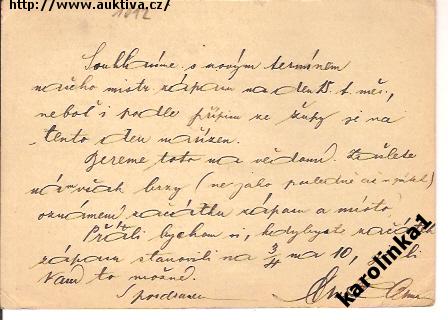 http://www.auktiva.cz/
1892
Souhlasíme s novým termínem
našeho mistr. zápasu na den 15. t. měs.,
neboť i podle přípisu ze župy je na
tento den nařízen.
Bereme toto na vědomí. Zašlete
nám však brzy (ne jako posledně až
oznámení začátku zápasu a místo.
Přáli bychom si, kdybyste začátek
zápasu stanovili na 3/4 na 10, -li
Vám to možné.
S pozdravem
karolinka1